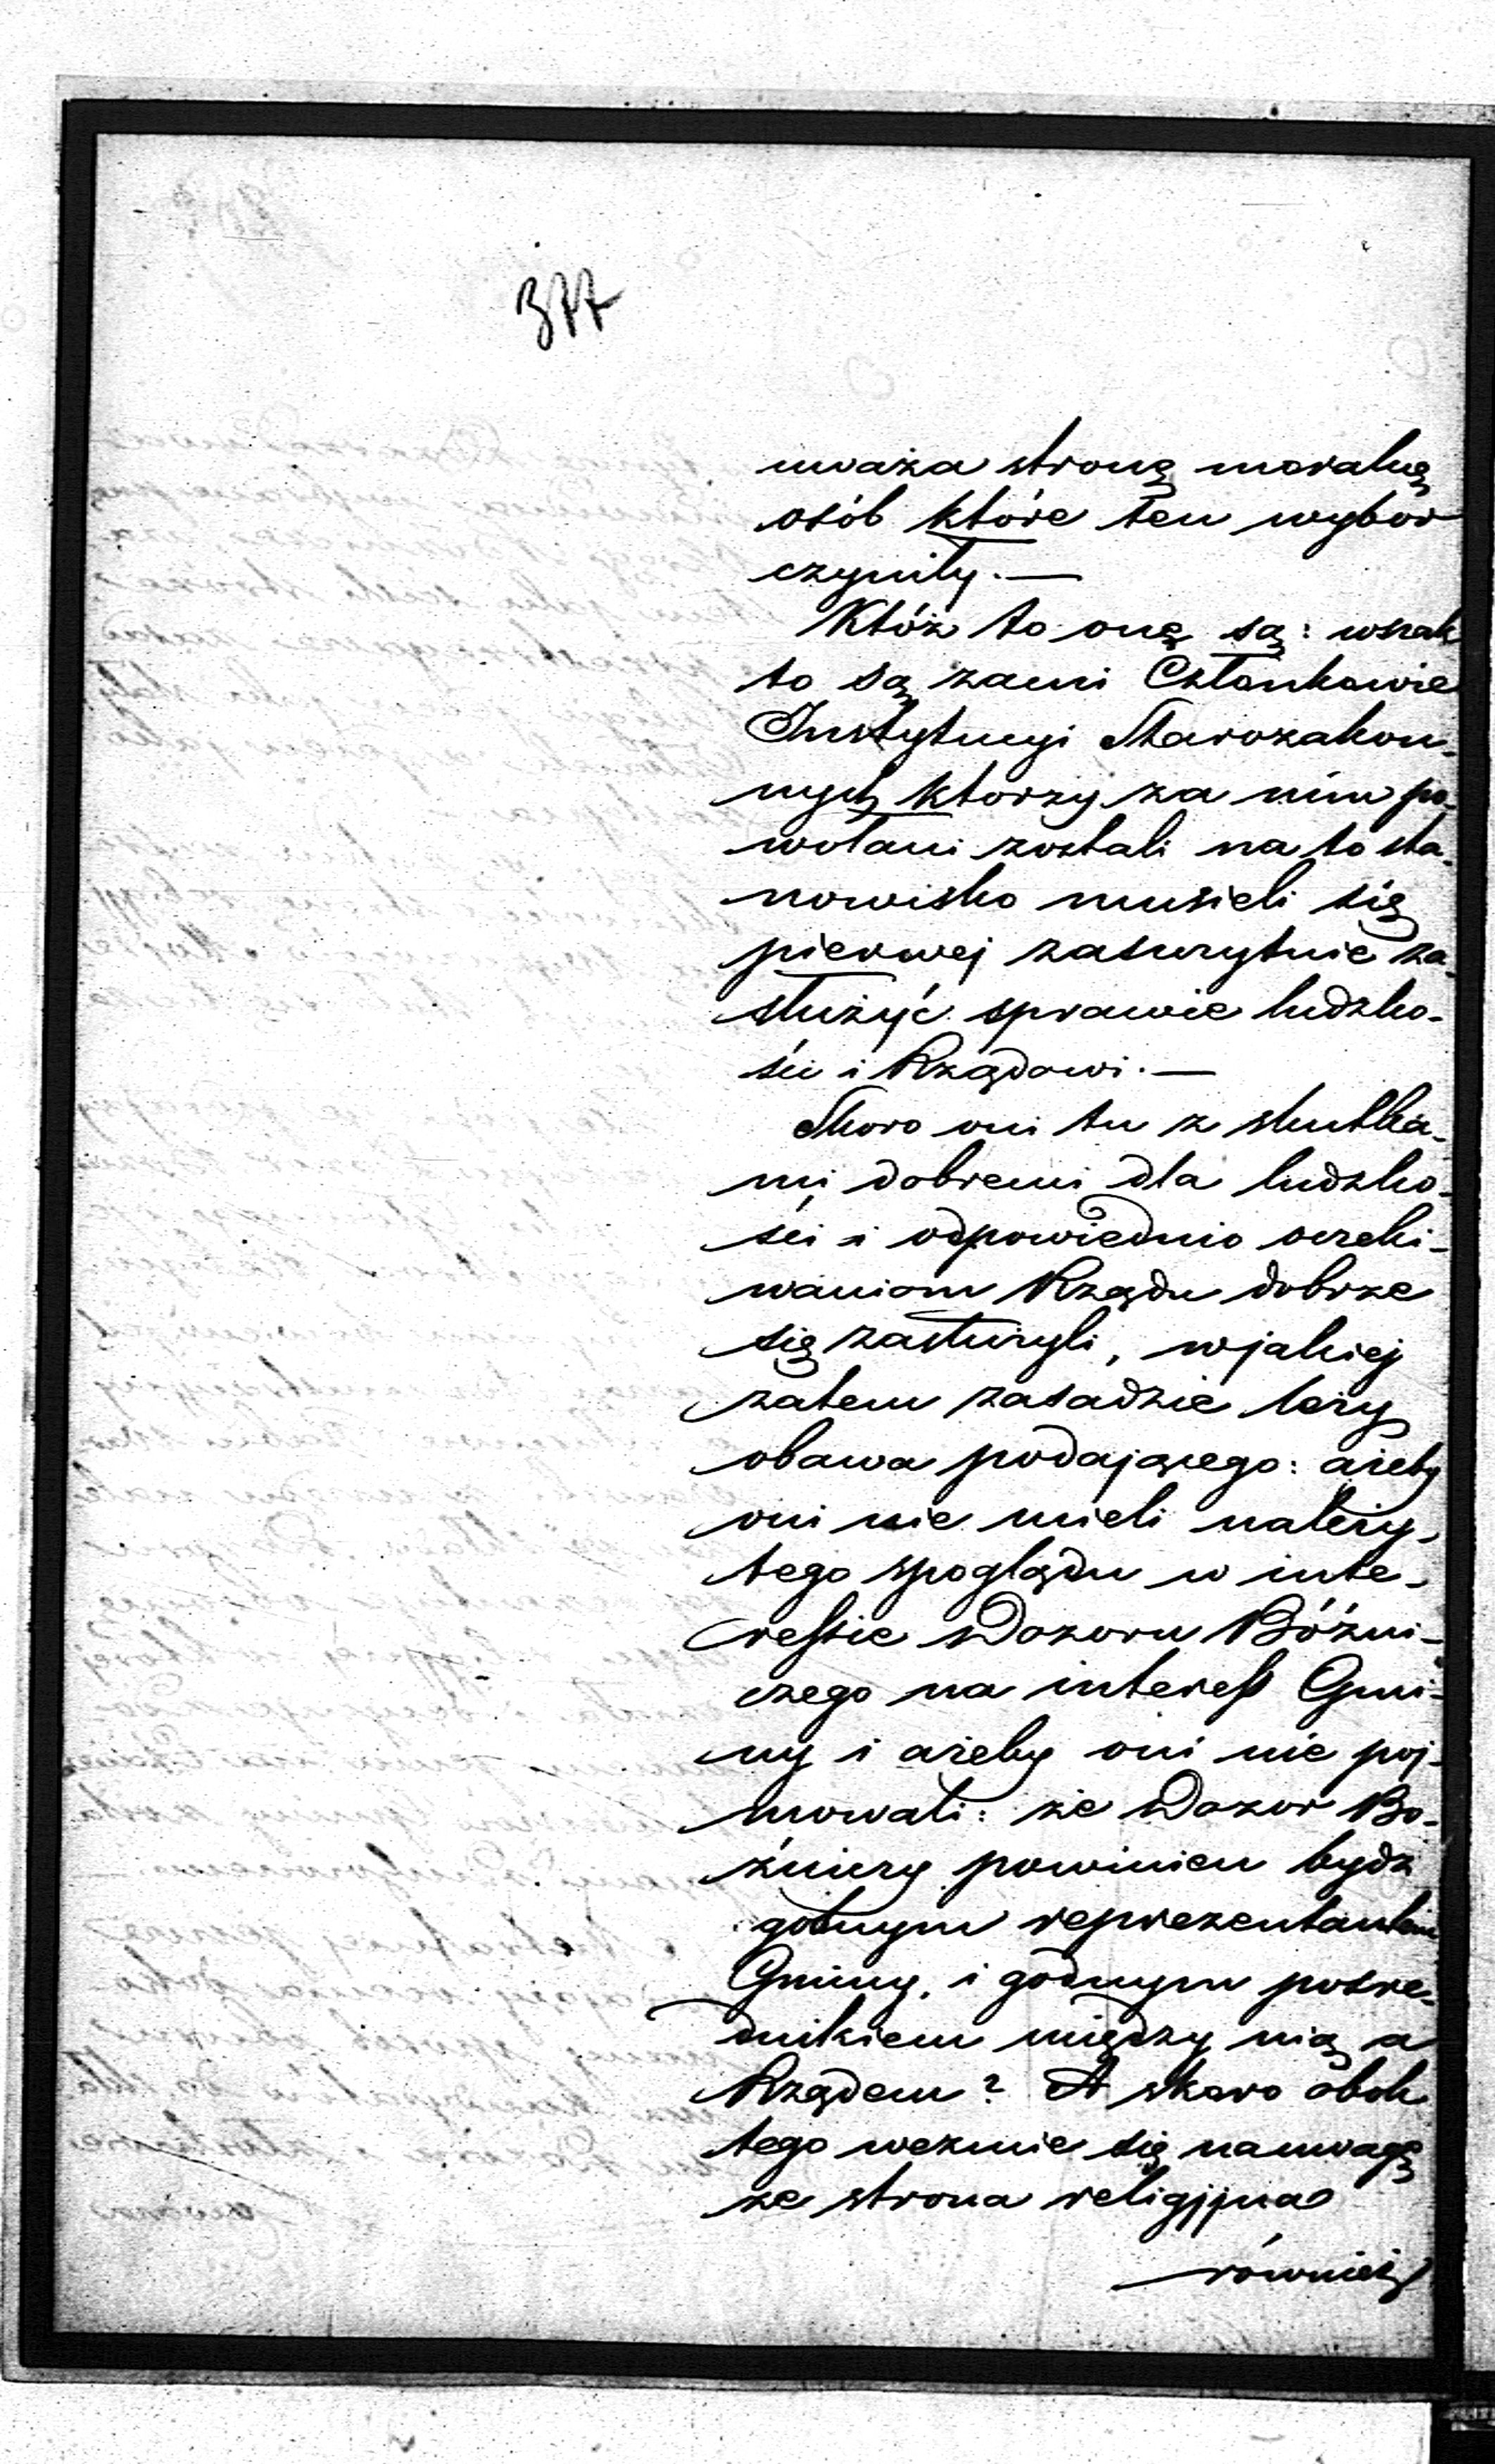 377
uważa stroną moralną
osób które ten wybor
czyniły. —
Któż to oną są: wszak
to są sami Członkowie
Instytucyi Starozakon-
nych ktorzy za nim po-
wołani zostali na to sta-
nowisko musieli się
pierwej zaszczytnie za-
służyć sprawie ludzko-
ści i Rządowi. —
Skoro oni tu z skutka-
mi dobremi dla ludzko-
ści i odpowiednio oczeki-
waniom Rządu dobrze
się zasłużyli, w jakiej
zatem zasadzie leży
obawa podającego: ażeby
oni nie mieli należy-
tego spoglądu w inte-
ressie Dozoru Bóżni-
czego na interess Gmi-
ny i ażeby oni nie poj-
mowali: że Dozor Bo-
żniczy powinien bydz
godnym reprezentantem
Gminy, i godnym posre-
dnikiem między nią a
Rządem? A skoro obok
tego wezmie się na uwagę
ze strona religijna
również